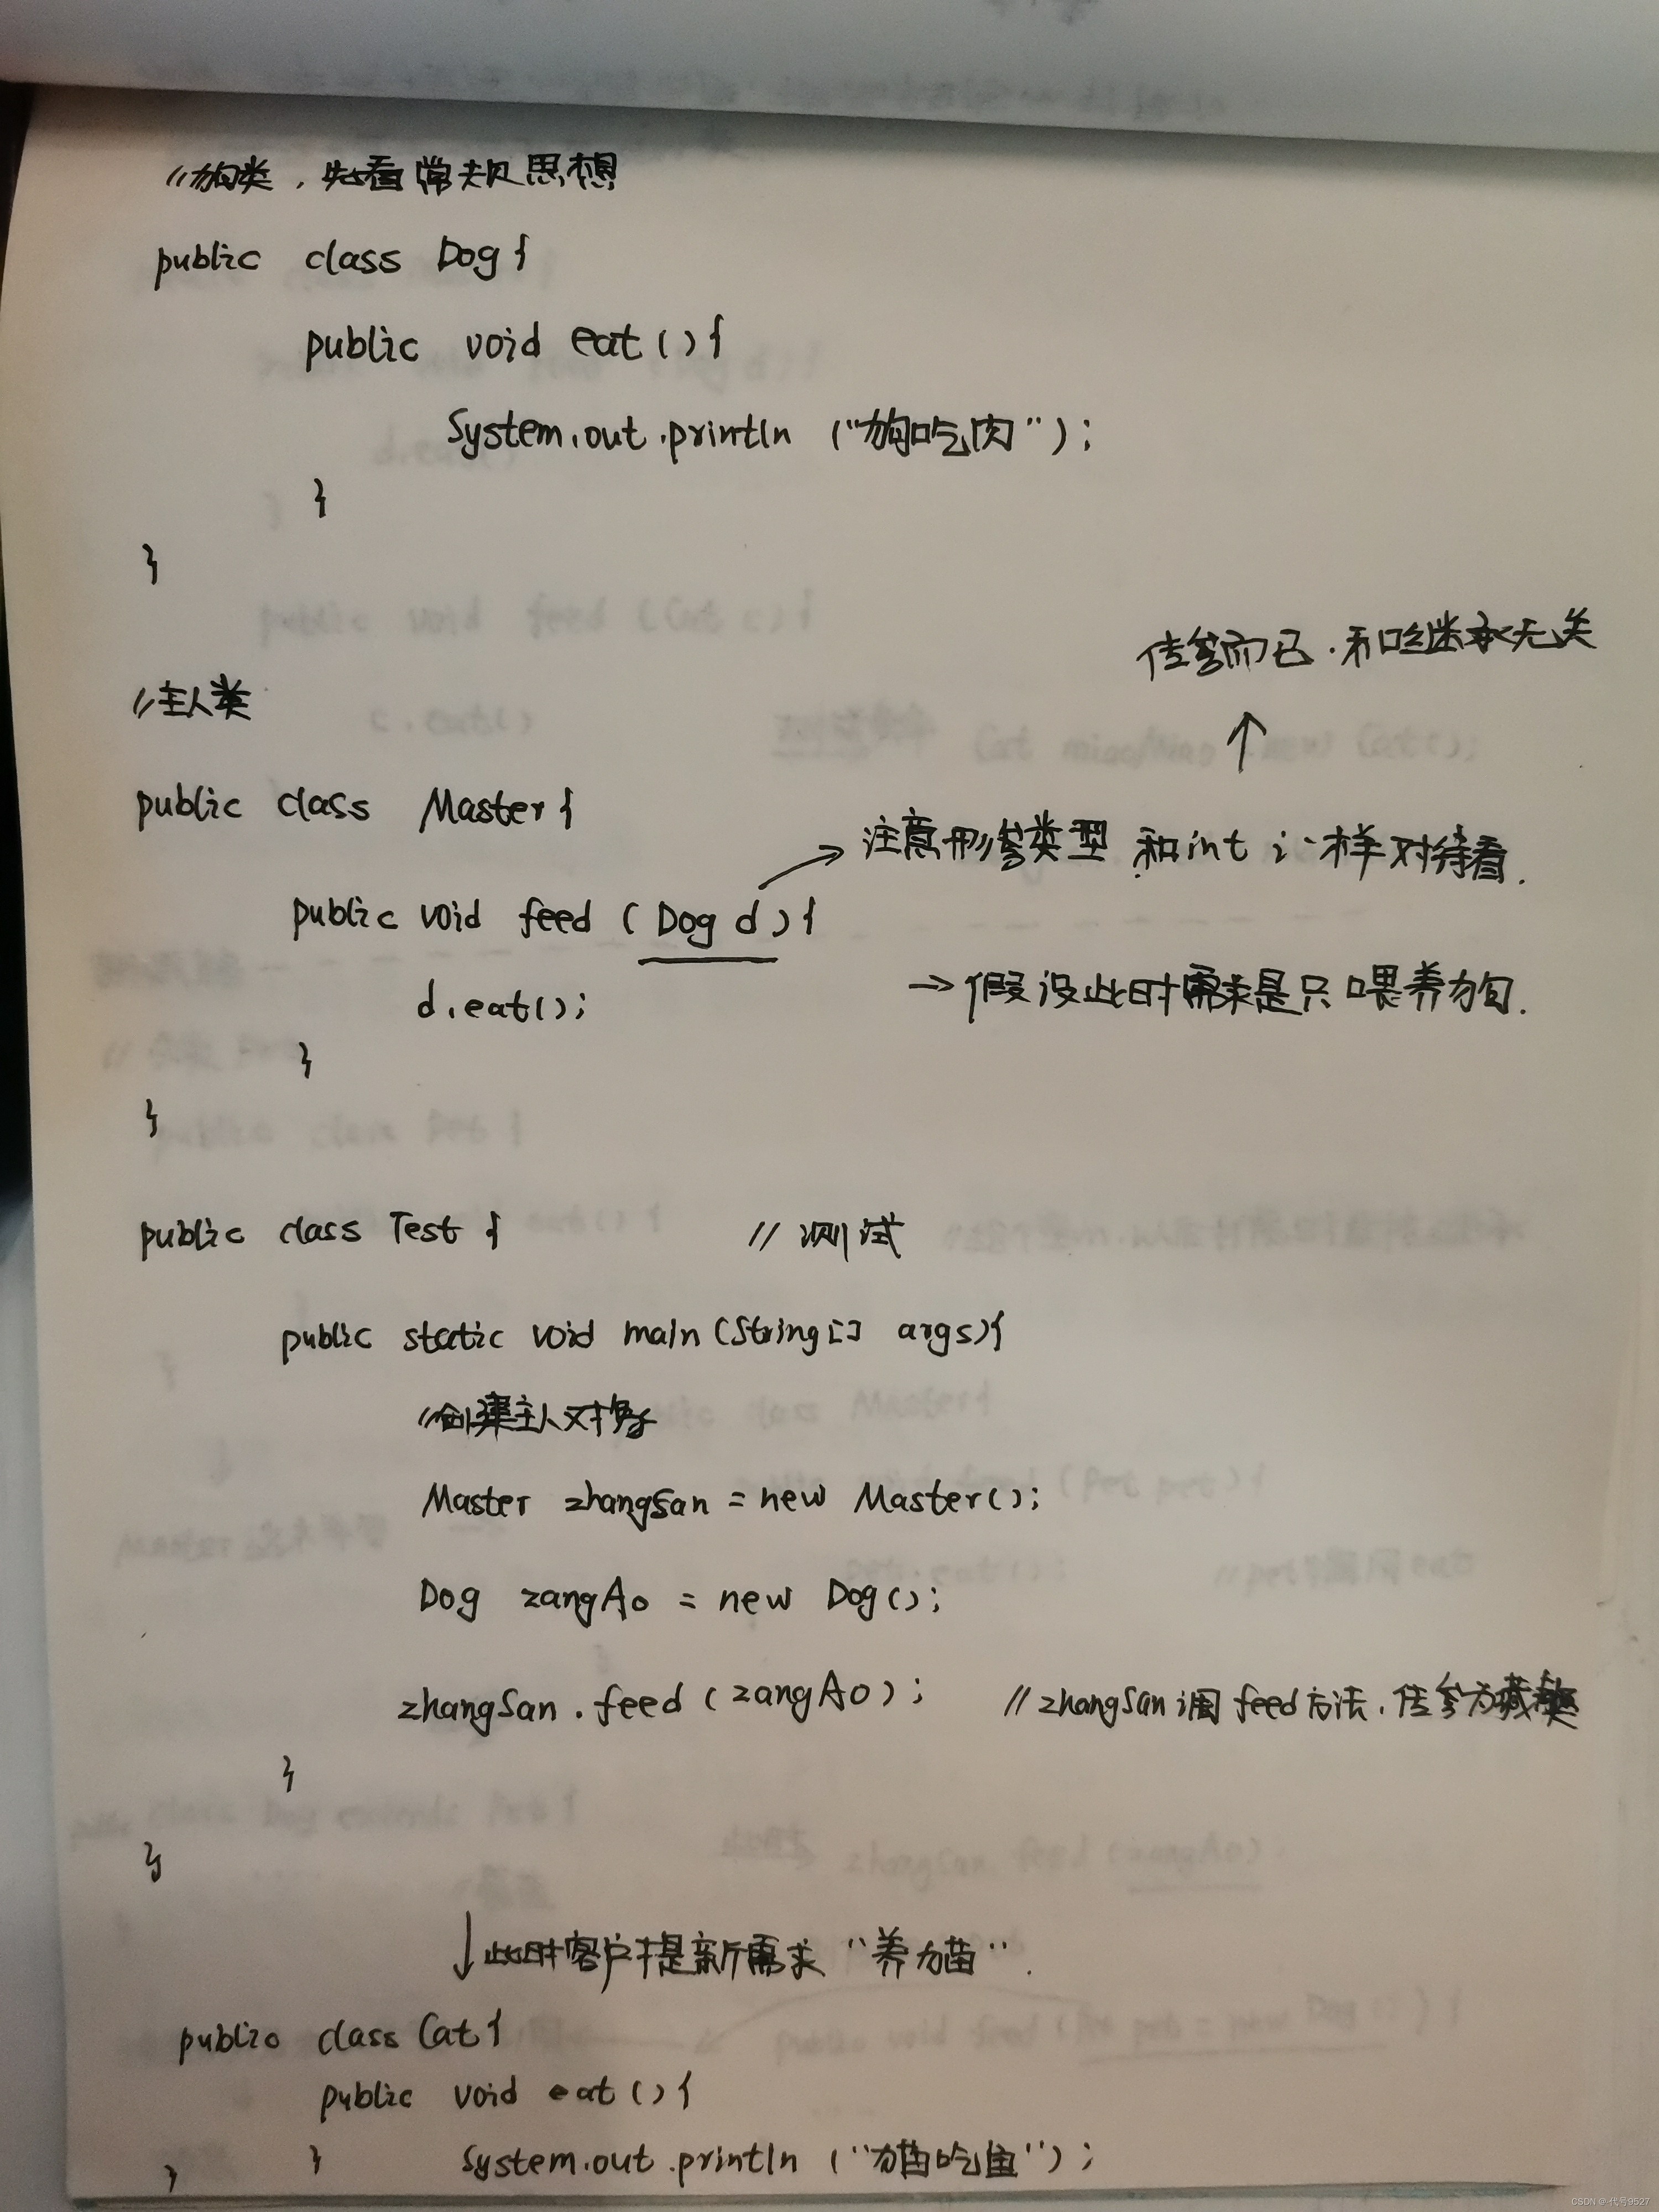 //狗类，先看常规思想
public class Dog{
public void eat(){
System.out.println("狗吃肉");
}
}
传参而已.和继承无关
//主人类
public class Master{
注意形参类型 和int i一样对待看.
public void feed(Dog d){
→假设此时需求是只喂养狗.
d.eat();
}
}
public class Test{ //测试
public static void main(String[] args){
//创建主人对象
Master zhangSan = new Master();
Dog zangAo = new Dog();
zhangSan.feed(zangAo); //zhangSan调feed方法.传参为藏獒
}
}
↓此时客户提新需求"养猫".
public class Cat{
public void eat(){
} } System.out.println("猫吃鱼");
CSDN @代号9527